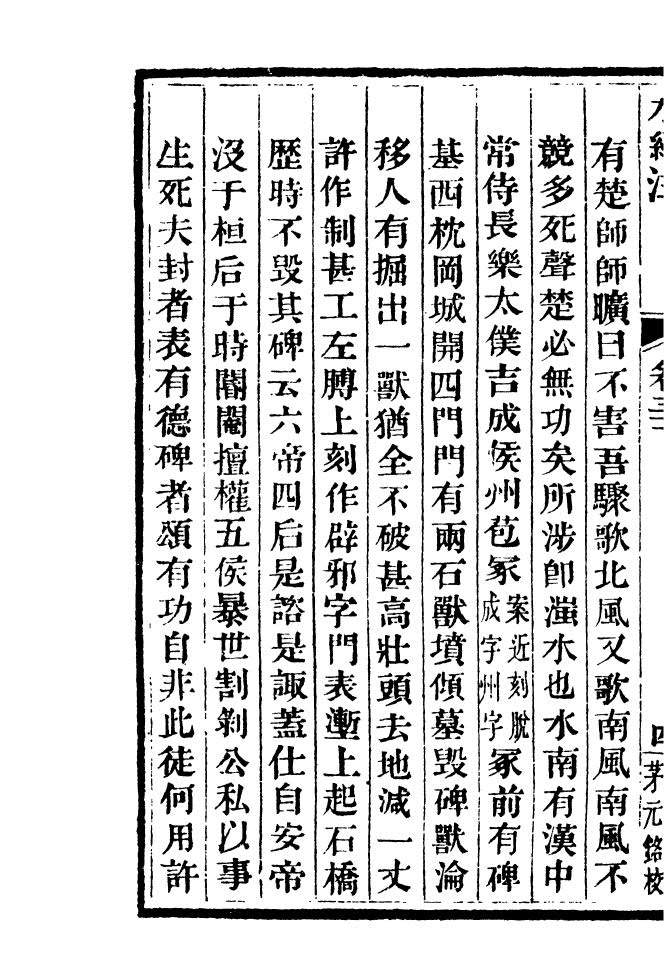 水經注 卷三 四 茅元銘校
有楚師師曠曰不害吾驟歌北風又歌南風南風不
競多死聲楚必無功矣所涉卽滍水也水南有漢中
常侍長樂太僕吉成侯州苞冢案近刻脫成字州字冢前有碑
基西枕岡城開四門門有兩石獸墳傾墓毀碑獸淪
移人有掘出一獸猶全不破甚高壯頭去地減一丈
許作制甚工左膊上刻作辟邪字門表壍上起石橋
歷時不毀其碑云六帝四后是諮是諏蓋仕自安帝
沒于桓后于時閹閽擅權五侯暴世割剝公私以事
生死夫封者表有德碑者頌有功自非此徒何用許